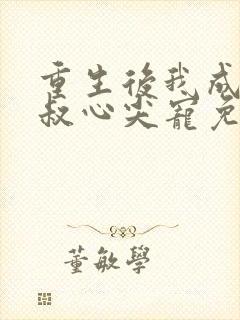 重生後我成
叔心尖寵免
董敏學